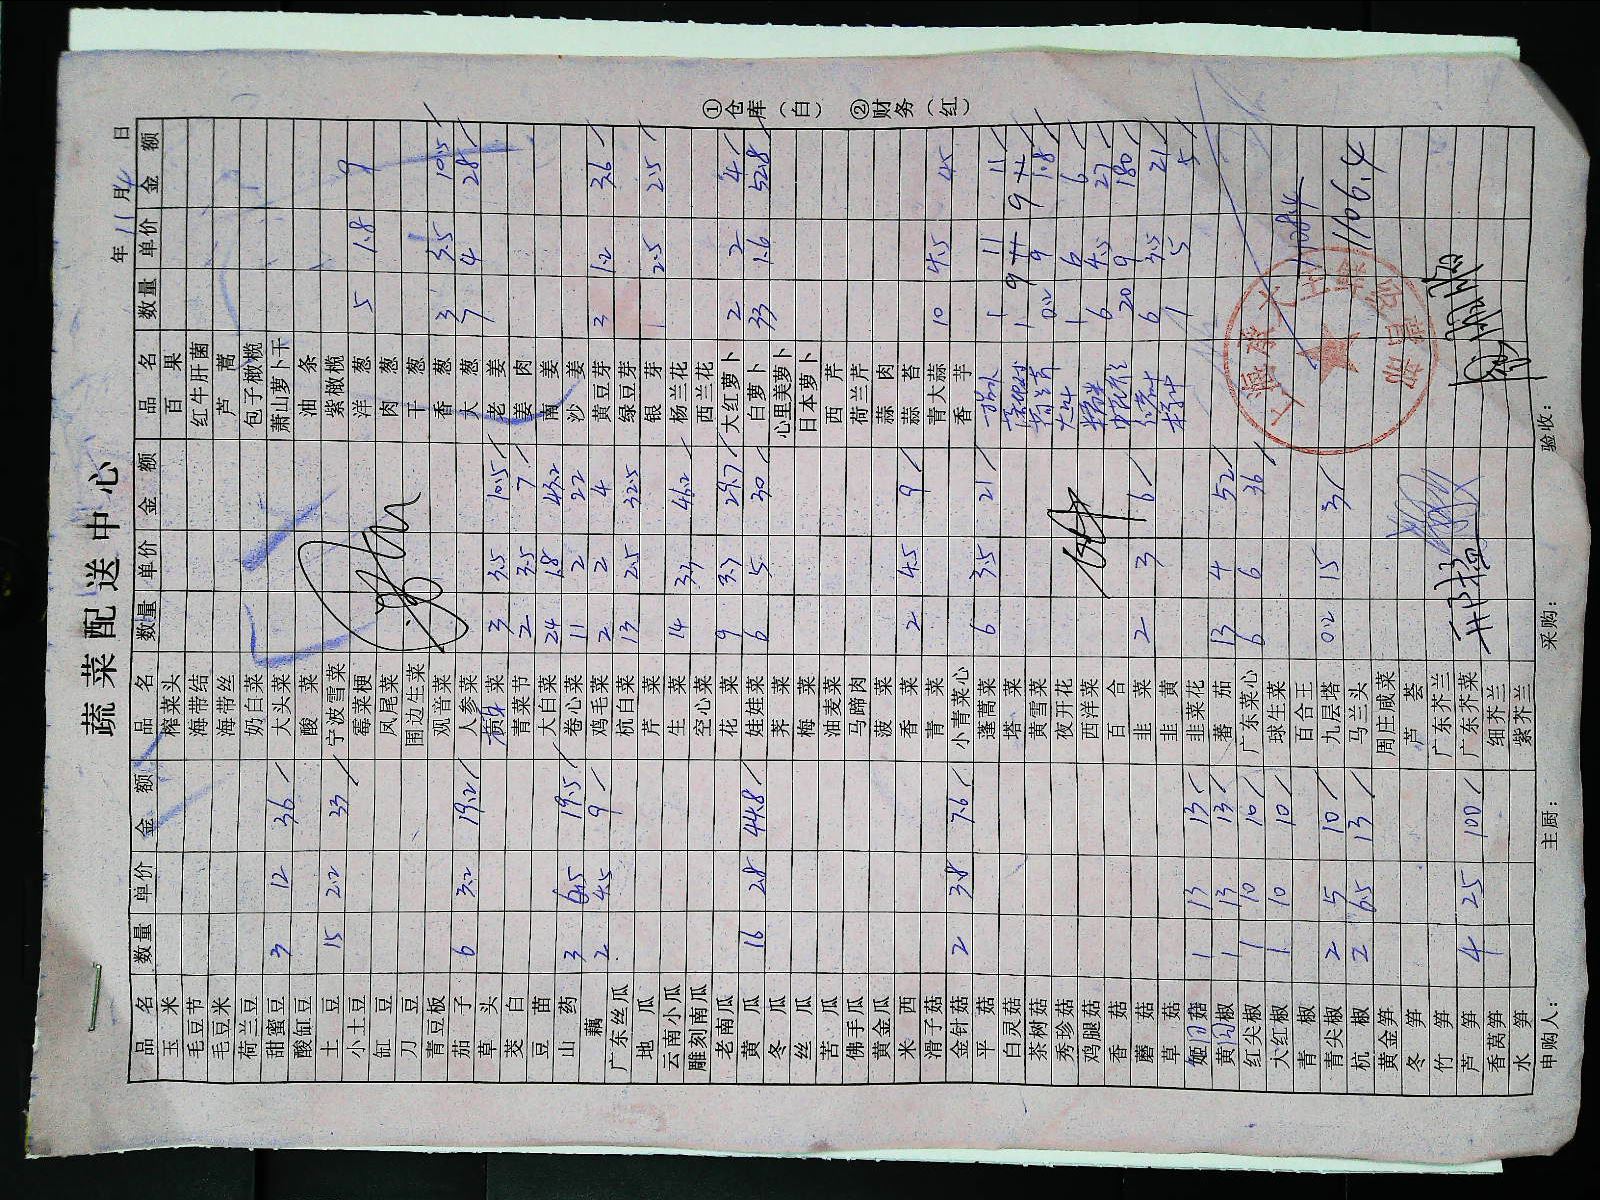 蔬菜配送中心
年 11 月 4 日
品名 数量 单价 金额 品名 数量 单价 金额 品名 数量 单价 金额
玉米 榨菜头 百果
毛豆节 海带结 红牛肝菌
毛豆米 海带丝 芦蒿
荷兰豆 奶白菜 包子橄榄
甜蜜豆 3 12 36 大头菜 萧山萝卜干
酸缸豆 酸菜 油条
土豆 15 2.2 33 宁波雪菜 紫橄榄
小土豆 霉菜梗 洋葱 5 1.8 9
缸豆 凤尾菜 肉葱
刀豆 围边生菜 干葱
青豆板 观音菜 香葱 3 3.5 10.5
茄子 6 3.2 19.2 人参菜 大葱 7 4 28
草头 菜 3 3.5 10.5 老姜
茭白 青菜节 2 3.5 7 姜肉
豆苗 大白菜 24 1.8 43.2 南姜
山药 3 6.5 19.5 卷心菜 11 2 22 沙姜
藕 2 4.5 9 鸡毛菜 2 2 4 黄豆芽 3 1.2 3.6
广东丝瓜 杭白菜 13 2.5 32.5 绿豆芽
地瓜 芹菜 银芽 1 2.5 2.5
云南小瓜 生菜 14 3.3 46.2 杨兰花
雕刻南瓜 空心菜 西兰花
老南瓜 花菜 9 3.3 29.7 大红萝卜 2 2 4
黄瓜 16 2.8 44.8 娃娃菜 6 5 30 白萝卜 33 1.6 52.8
冬瓜 荠菜 心里美萝卜
丝瓜 梅菜 日本萝卜
苦瓜 油麦菜 西芹
佛手瓜 马蹄肉 荷兰芹
黄金瓜 菠菜 蒜肉
米西 香菜 2 4.5 9 蒜苔
滑子菇 青菜 青大蒜 10 4.5 45
金针菇 2 3.8 7.6 小青菜心 香芋
平菇 蓬蒿菜 6 3.5 21 1 11 11
白灵菇 塔菜 1 9 9
茶树菇 黄雪菜 0.2 9 1.8
秀珍菇 夜开花 1 6 6
鸡腿菇 西洋菜 6 4.5 27
香菇 百合 20 9 180
蘑菇 韭菜 2 3 6 6 3.5 21
草菇 韭黄 1 5 5
姬菇 1 13 13 韭菜花
黄椒 1 13 13 蕃茄 13 4 52
红尖椒 1 10 10 广东菜心 6 6 36
大红椒 1 10 10 球生菜
青椒 百合王
青尖椒 2 5 10 九层塔 0.2 15 3
杭椒 2 6.5 13 马兰头 1106.4
黄金笋 周庄咸菜
冬笋 芦荟
竹笋 广东芥兰
芦笋 4 25 100 广东芥菜
香莴笋 细芥兰
水笋 紫芥兰
申购人： 主厨： 采购： 验收：
①仓库（白） ②财务（红）